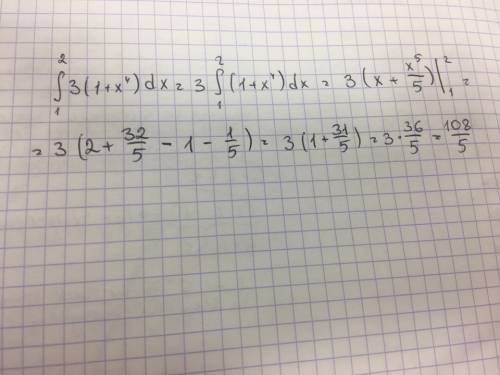 ∫₁² 3(1+x⁴)dx = 3 ∫₁² (1+x⁴)dx = 3(x + x⁵/5)|₁² =
= 3(2 + 32/5 - 1 - 1/5) = 3(1 + 31/5) = 3·36/5 = 108/5